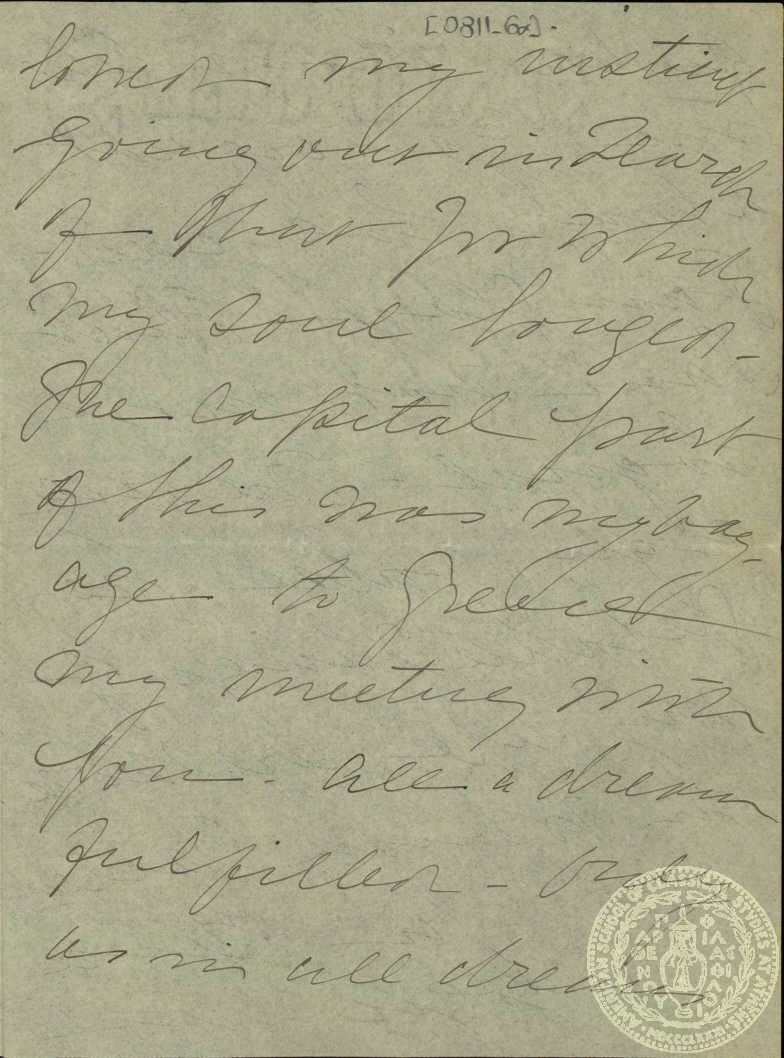 [0811-6α].
loved my instinct
going out in search
of that for which
my soul longed -
The capital part
of this was my voy-
age to Greece
my meeting with
you - all a dream
fulfilled - Only
as in all dreams
AMERICAN SCHOOL OF CLASSICAL STUDIES AT ATHENS
ΠΑΡΘΕΝΟΥ ΦΙΛΑΣ ΦΙΛΟΙ
MDCCCLXXXI